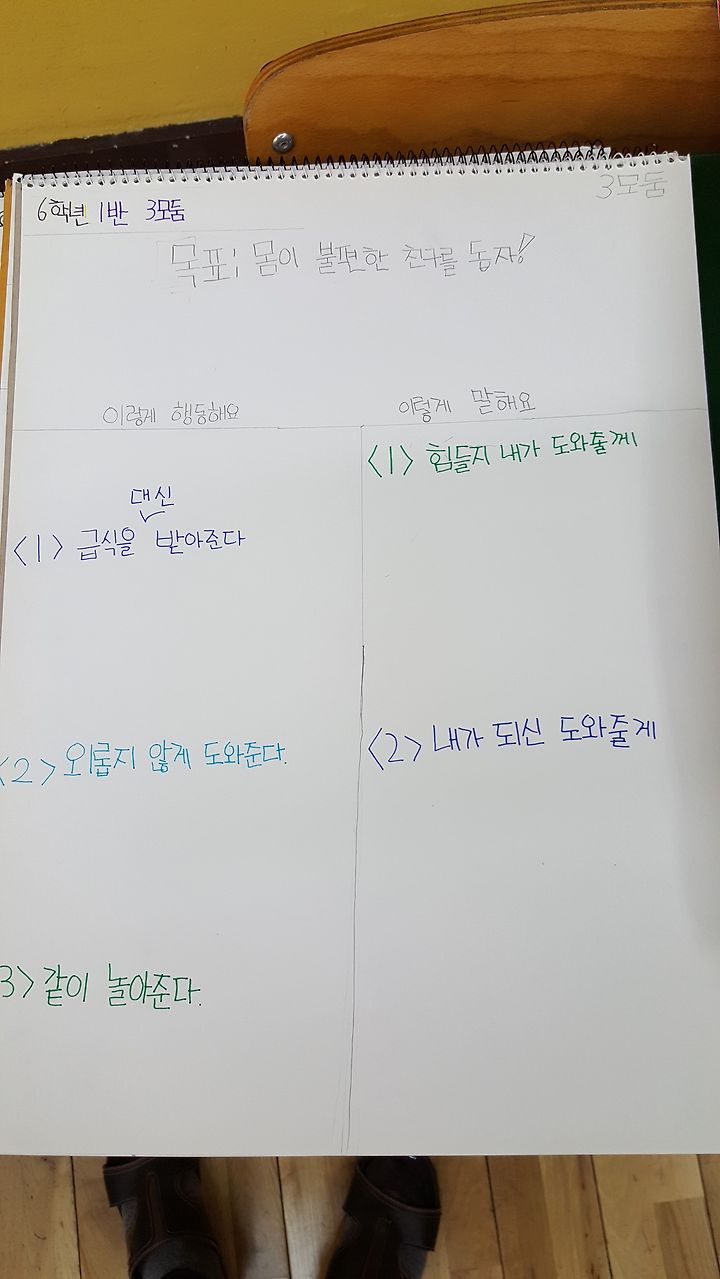 6학년 1반 3모둠
3모둠
목표; 몸이 불편한 친구를 돕자!
이렇게 행동해요
이렇게 말해요
<1> 힘들지 내가 도와줄께
대신
<1> 급식을 받아준다
<2> 내가 되신 도와줄게
<2> 외롭지 않게 도와준다.
3> 같이 놀아준다.